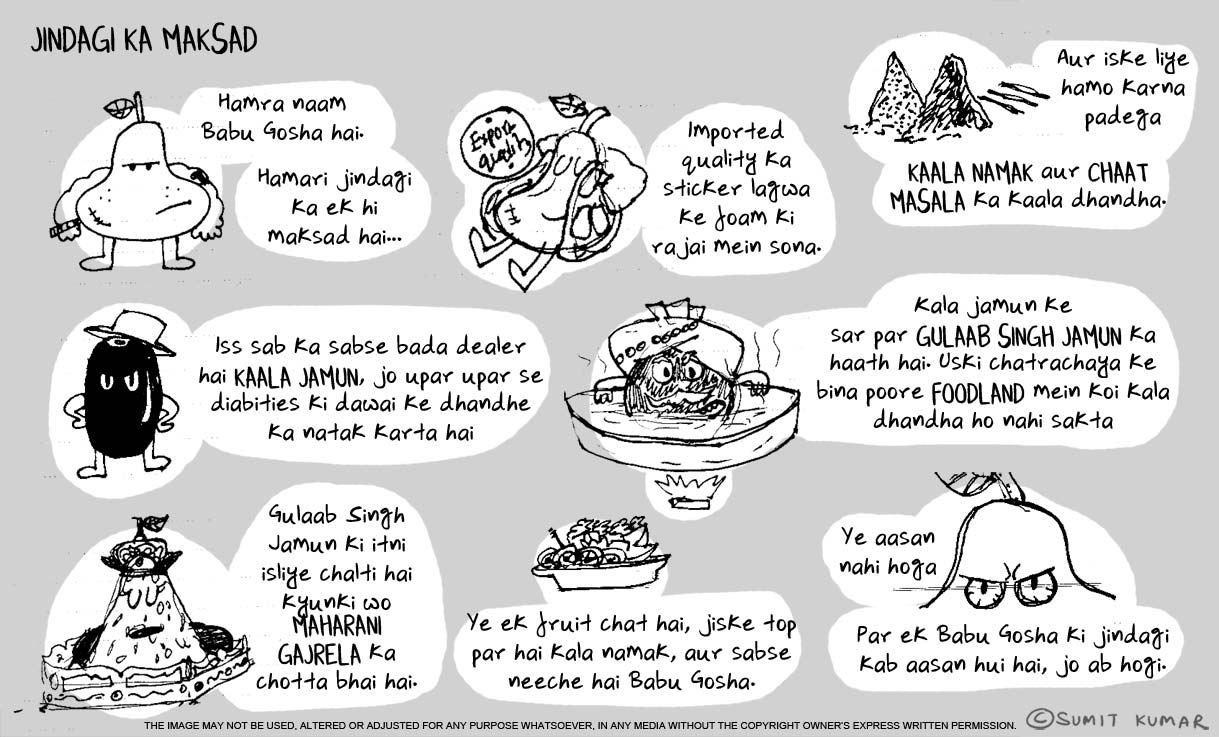 JINDAGI KA MAKSAD
Hamra naam
Babu Gosha hai.
Hamari jindagi
ka ek hi
maksad hai...
Export
quality
Imported
quality ka
sticker lagwa
ke foam ki
rajai mein sona.
Aur iske liye
hamo karna
padega
KAALA NAMAK aur CHAAT
MASALA ka kaala dhandha.
Iss sab ka sabse bada dealer
hai KAALA JAMUN, jo upar upar se
diabities ki dawai ke dhandhe
ka natak karta hai
Kala jamun ke
sar par GULAAB SINGH JAMUN ka
haath hai. Uski chatrachaya ke
bina poore FOODLAND mein koi kala
dhandha ho nahi sakta
Gulaab Singh
Jamun ki itni
isliye chalti hai
kyunki wo
MAHARANI
GAJRELA ka
chotta bhai hai.
Ye ek fruit chat hai, jiske top
par hai kala namak, aur sabse
neeche hai Babu Gosha.
Ye aasan
nahi hoga
Par ek Babu Gosha ki jindagi
kab aasan hui hai, jo ab hogi.
THE IMAGE MAY NOT BE USED, ALTERED OR ADJUSTED FOR ANY PURPOSE WHATSOEVER, IN ANY MEDIA WITHOUT THE COPYRIGHT OWNER'S EXPRESS WRITTEN PERMISSION.
©SUMIT KUMAR